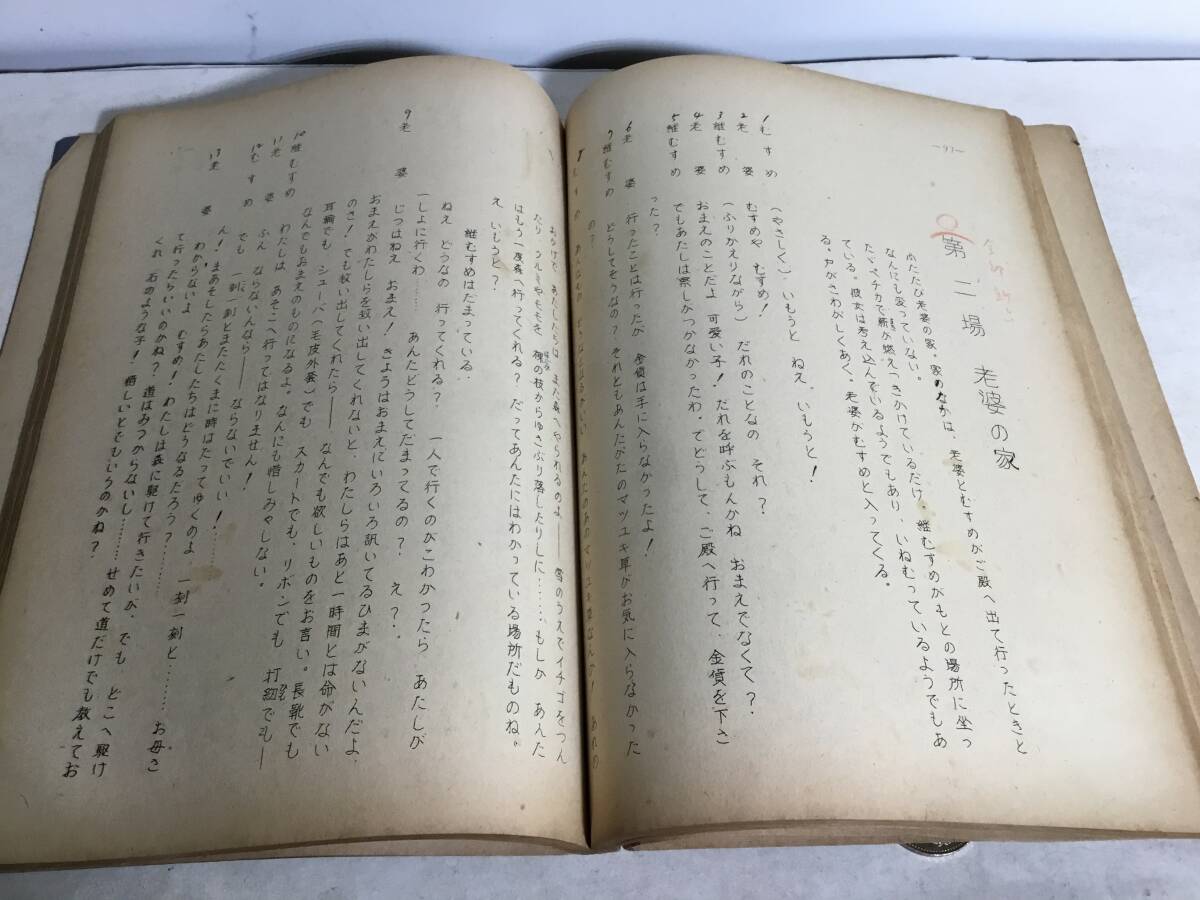 —97—
第二場　老婆の家
ふたたび老婆の家。家のなかは、老婆とむすめがご殿へ出て行ったときと
なんにも変っていない。
ただペチカで薪が燃えつきかけているだけ。継むすめがもとの場所に坐っ
ている。彼女は考え込んでいるようでもあり、いねむっているようでもあ
る。戸がさわがしくあく。老婆がむすめと入ってくる。
1 むすめ　（やさしく）いもうと　ねえ、いもうと！
2 老　婆　むすめや　むすめ！
3 継むすめ　（ふりかえりながら）だれのことなの　それ？
4 老　婆　おまえのことだよ　可愛い子！　だれを呼ぶもんかね　おまえでなくて？
5 継むすめ　でもあたしは察しがつかなかったわ。でどうして、ご殿へ行って、金貨を下さ
った？
6 老　婆　行ったことは行ったが　金貨は手に入らなかったよ！
7 継むすめ　どうしてそうなの？それともあんたがたのマツユキ草がお気に入らなかった
の？
8
おかげで　あたしたちは　また森へやられるのよ——雪のうえでイチゴをつん
だり　クルミやももを　裸の枝からゆさぶり落したりしに……もしか　あんた
はもう一度森へ行ってくれる？　だってあんたにはわかっている場所だものね。
え、いもうと？
継むすめはだまっている。
ねえ　どうなの　行ってくれる？　一人で行くのがこわかったら　あたしが
一しょに行くわ……　あんたどうしてだまってるの？　え？
9 老　婆　じつはねえ　おまえ！きょうはおまえにいろいろ訊いてるひまがないんだよ。
おまえがわたしらを救い出してくれないと、わたしらはあと一時間とは命がない
のさ！でも救い出してくれたら——　なんでも欲しいものをお言い。長靴でも
耳輪でも　シューバ（毛皮外套）でも　スカートでも、リボンでも　打紐でも——
なんでもおまえのものになるよ。なんにも惜しみやしない。
10 継むすめ　わたしは　あそこへ行ってはなりません！
11 老　婆　ふん　ならないんなら——　ならないでいい！……
12 むすめ　でも　一刻一刻とまたたくまに時はたってゆくのよ、一刻一刻と……お母さ
ん！まあそしたらあたしたちはどうなるだろう？
13 老　婆　わからないよ　むすめ！わたしは森に駆けて行きたいが、でも　どこへ駆け
て行ったらいいのかね？　道はみつからないし……せめて道だけでも教えてお
くれ　石のような子！　惜しいとでもいうのかね？